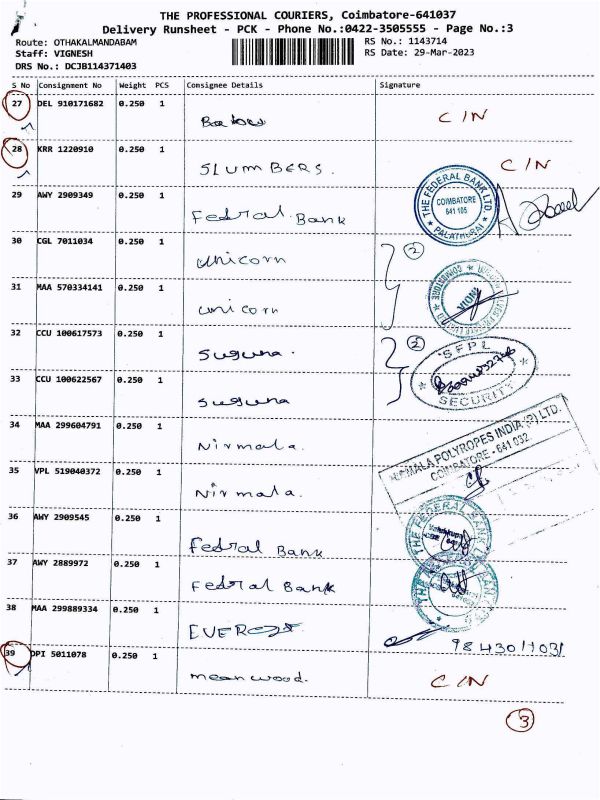 THE PROFESSIONAL COURIERS, Coimbatore-641037
Delivery Runsheet - PCK - Phone No.:0422-3505555 - Page No.:3
Route: OTHAKALMANDABAM RS No.: 1143714
Staff: VIGNESH RS Date: 29-Mar-2023
DRS No.: DCJB114371403
S No Consignment No Weight PCS Consignee Details Signature
27 DEL 910171682 0.250 1 CIN
28 KRR 1220910 0.250 1 SLUMBERS. CIN
29 AWY 2909349 0.250 1 Fedral Bank THE FEDERAL BANK LTD. COIMBATORE 641 105
30 CGL 7011034 0.250 1 unicorn 2
31 MAA 570334141 0.250 1 unicorn INDIA
32 CCU 100617573 0.250 1 suguna. 2 SFPL
33 CCU 100622567 0.250 1 suguna SECURITY
34 MAA 299604791 0.250 1 Nirmala. NIRMALA POLYROPES INDIA (P) LTD.
COIMBATORE - 641 032
35 VPL 519040372 0.250 1 Nirmala.
36 AWY 2909545 0.250 1 Fedral Bank THE FEDERAL BANK LTD
37 AWY 2889972 0.250 1 Fedral Bank
38 MAA 299889334 0.250 1 EVEREST
39 OPI 5011078 0.250 1 mean wood. CIN
3